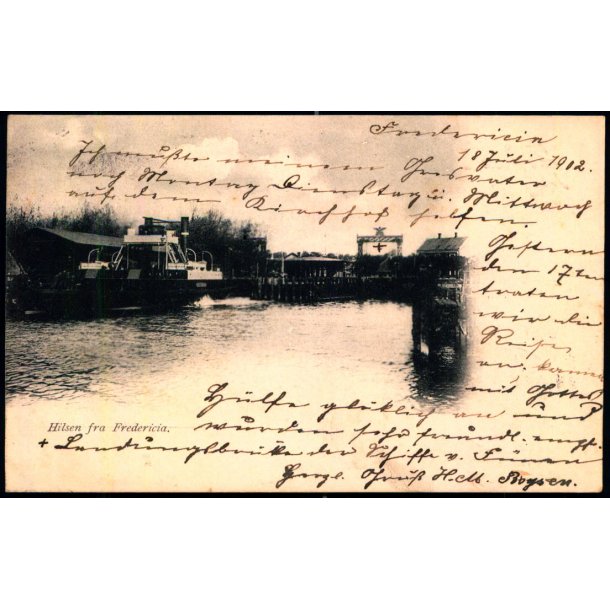 Fredericia
18 Juli 1902.
Ich mußte meinem Gravater
noch Montag Dienstag u. Mittwoch
auf dem Kirchhof helfen.
Gestern
den 17ten
traten
wir die
Reise
an. kamen
mit Gottes
Hülfe glücklich an und
wurden sehr freundl. empf.
+ Landungsbrücke der Schiffe v. Fünen
Herzl. Gruß H. M. Boysen.
Hilsen fra Fredericia.